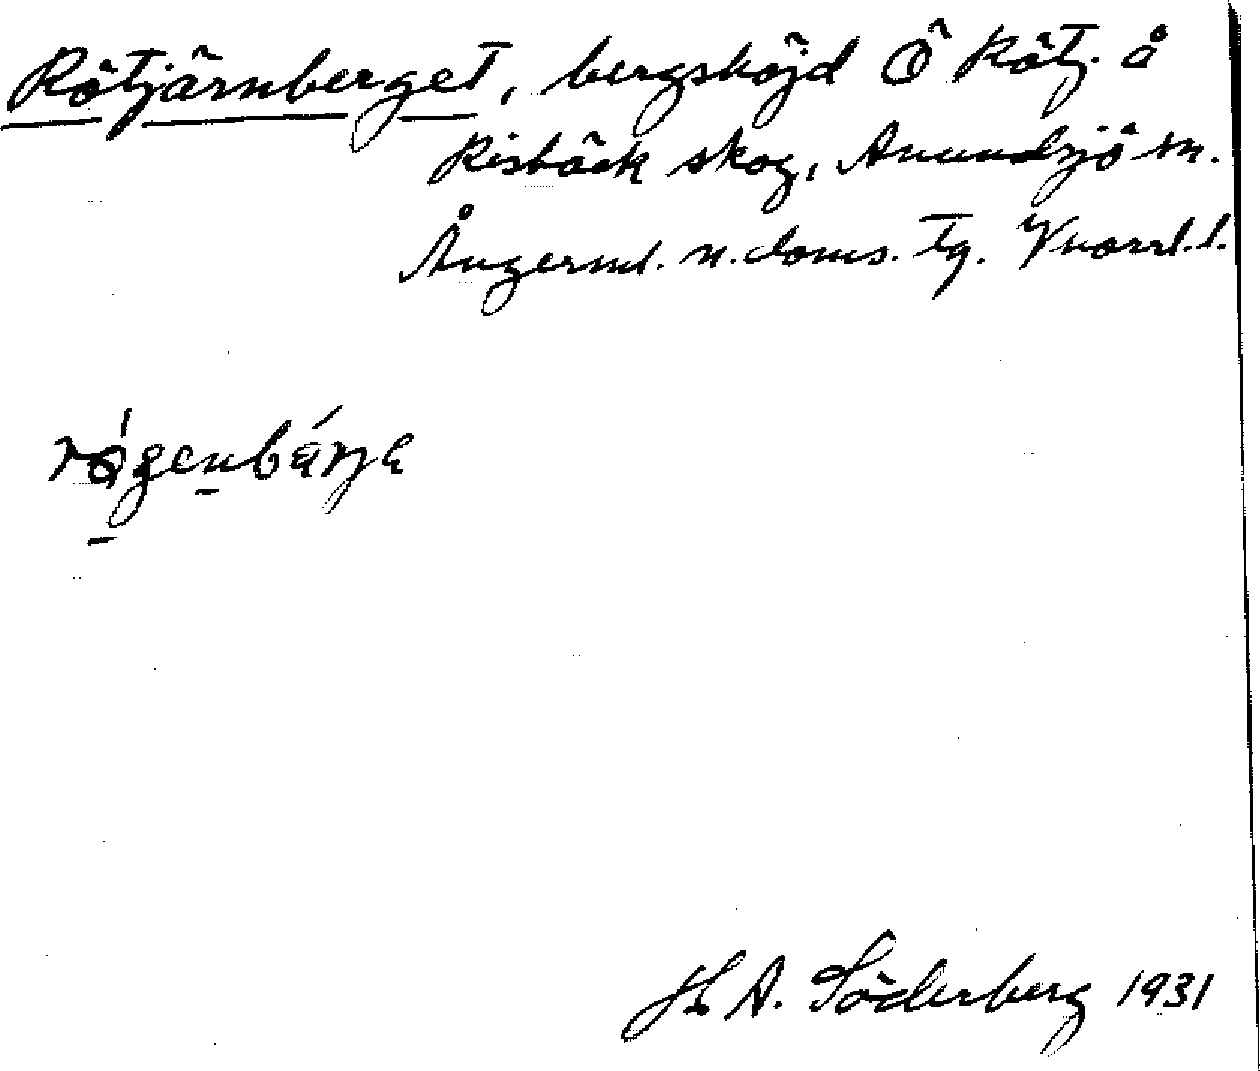 Rötjärnberget, bergshöjd Ö Rötj. å
Risbäck skog, Anundsjö sn.
Ångerml. n. doms. tg. Vnorrl. l.
H A. Söderberg 1931